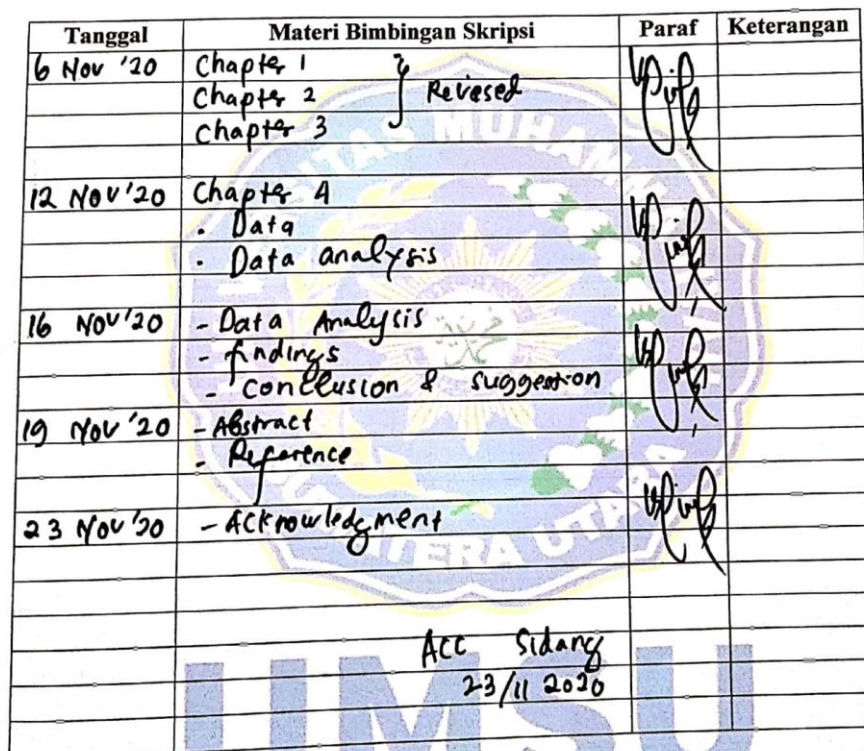 Tanggal Materi Bimbingan Skripsi Paraf Keterangan
6 Nov '20 Chapter 1
Chapter 2 } Revised
Chapter 3
12 Nov '20 Chapter 4
. Data
. Data analysis
16 Nov '20 - Data Analysis
- findings
- Conclusion & suggestion
19 Nov '20 - Abstract
- Reference
23 Nov '20 - Acknowledgment
ACC Sidang
23/11 2020
UMSU